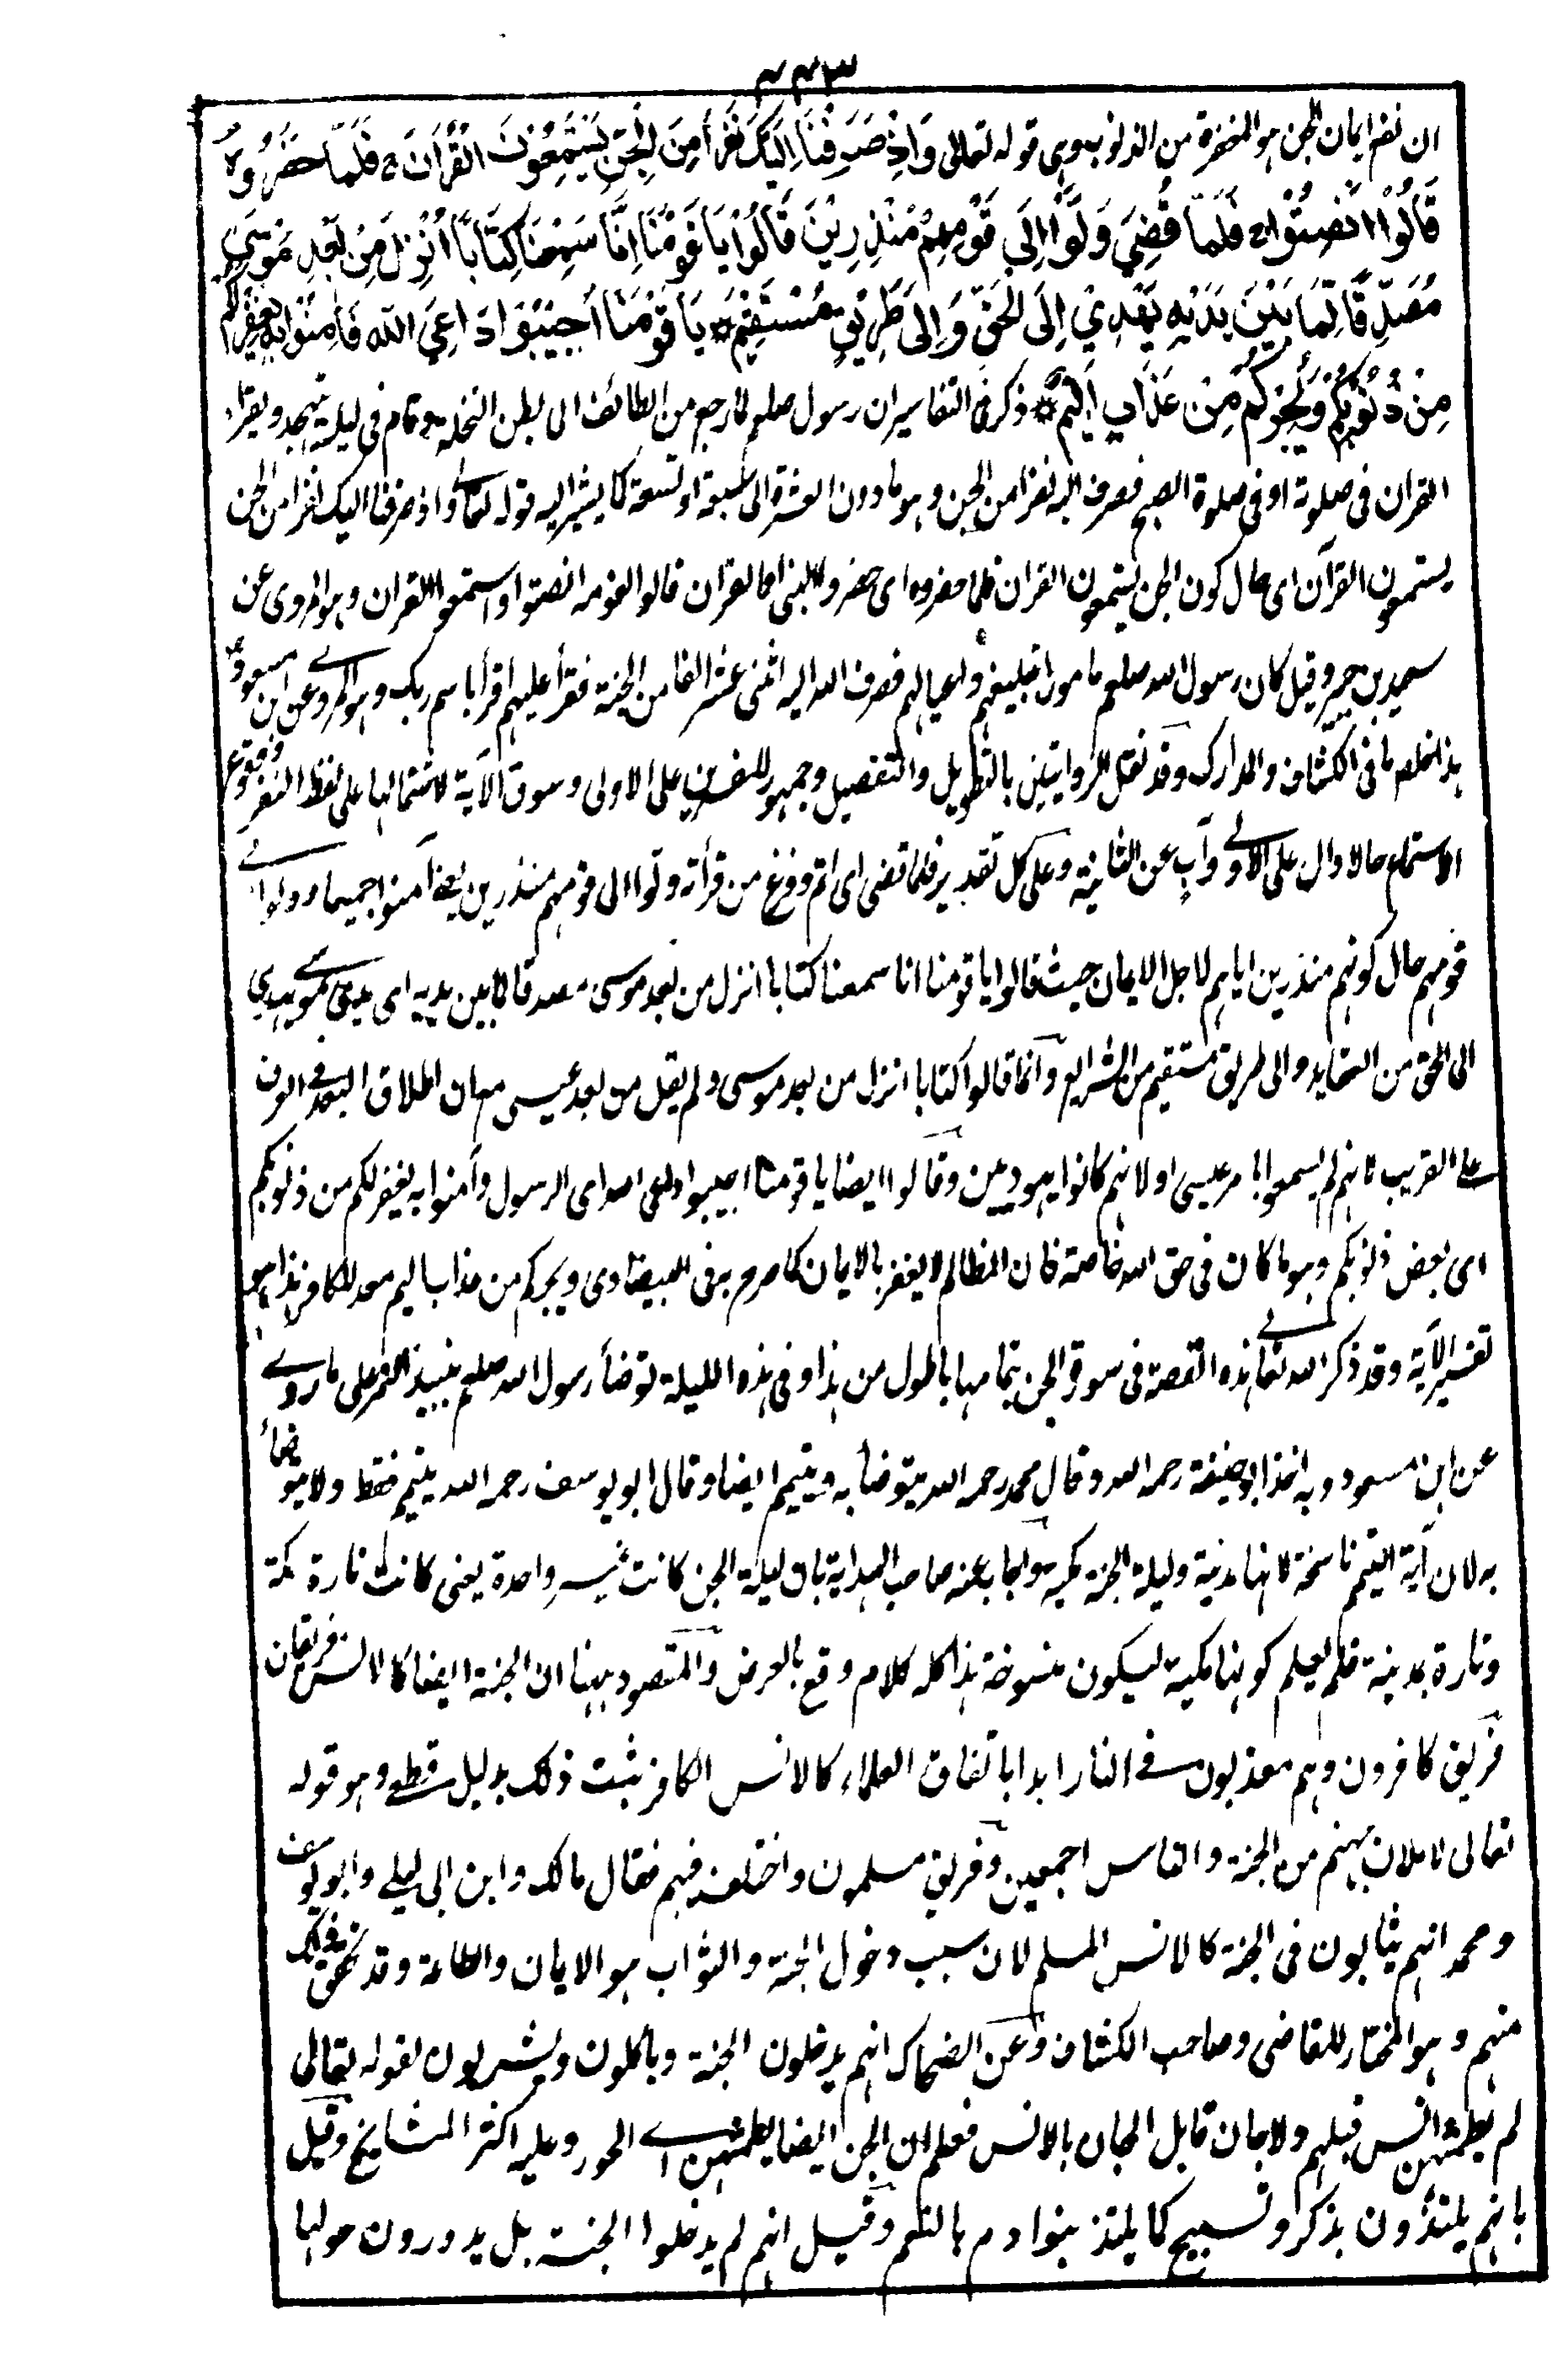 ٦٦٣
ان نفع ايمان الجن هو المغفرة من الذنوب وهى قوله تعالى وَاِذْ صَرَفْنَا اِلَيْكَ نَفَرًا مِنَ الْجِنِّ يَسْتَمِعُوْنَ الْقُرْاٰنَ ج فَلَمَّا حَضَرُوْهُ
قَالُوْا اَنْصِتُوْا ج فَلَمَّا قُضِيَ وَلَّوْا اِلَى قَوْمِهِمْ مُنْذِرِيْنَ قَالُوْا يَا قَوْمَنَا اِنَّا سَمِعْنَا كِتَابًا اُنْزِلَ مِنْ بَعْدِ مُوْسَى
مُصَدِّقًا لِّمَا بَيْنَ يَدَيْهِ يَهْدِيْ اِلَى الْحَقِّ وَاِلى طَرِيْقٍ مُسْتَقِيْمٍ يَا قَوْمَنَا اَجِيْبُوْا دَاعِيَ اللّٰه فَاٰمِنُوْا بِهِ يَغْفِرْ لَكُمْ
مِنْ ذُنُوْبِكُمْ وَيُجِرْكُمْ مِنْ عَذَابٍ اَلِيْمٍ ذكر فى التفاسير ان رسول صلعم لما رجع من الطائف الى بطن النخلة وقام فى ليلة يتهجد ويقرأ
القران فى صلوته او فى صلوة الصبح فصرف اليه نفرا من الجن وهو ما دون العشرة الى سبعة او تسعة كما يشير اليه قوله تعالى واذ صرفنا اليك نفرا من الجن
يستمعون القرآن اى حال كون الجن يستمعون القران فلما حضروه اى حضروا النبى او القران قالوا لقومه انصتوا واستمعوا القران وهو المروى عن
سعيد بن جبير وقيل كان رسول الله صلعم مامورا بتبليغهم وايصالهم فصرف الله اليه اثنى عشر الفا من الجنة فقرأ عليهم اقرأ باسم ربك وهو المروى عن ابن مسعود
هذا خلص ما فى الكشاف والمدارك وقد نقل الروايتين بالتطويل والتفصيل وجمهور المفسرين على الاولى وسوق الآية لاشتمالها على لفظ النفر ووقوع
الاستماع حالا دال على الاولى وآب عن الثانية وعلى كل تقدير فلما قضى اى اتم وفرغ من قرأته ولوا الى قومهم منذرين يعنى آمنوا جميعا وولوا الى
قومهم حال كونهم منذرين اياهم لاجل الايمان حيث قالوا يا قومنا انا سمعنا كتابا انزل من بعد موسى مصدقا لما بين يديه اى يدى موسى يهدي
الى الحق من العقايد والى طريق مستقيم من الشرايع وانما قالوا كتابا انزل من بعد موسى ولم يقل من بعد عيسى مع ان اطلاق البعد فى العرف
على القريب لانهم لم يسمعوا بامر عيسى او لانهم كانوا يهوديين وقالوا ايضا يا قومنا اجيبوا داعى الله اى الرسول وآمنوا به يغفر لكم من ذنوبكم
اى بعض ذنوبكم وهو ما كان فى حق الله خاصة فان المظالم لا يغفر بالايمان كما صرح به فى البيضاوى ويجركم من عذاب اليم معد للكافر هذا هو
تفسير الآية وقد ذكر الله تعالى هذه القصة فى سورة الجن بتمامها باطول من هذا وفى هذه الليلة توضأ رسول الله صلعم بنبيذ التمر على ما روى
عن ابن مسعود وبه اخذ ابو حنيفة رحمه الله وقال محمد رحمه الله يتوضأ به ويتيمم ايضا وقال ابو يوسف رحمه الله يتيمم فقط ولا يتوضأ
به لان آية التيمم ناسخة لانها مدنية وليلة الجنة مكية واجاب عنه صاحب الهداية بان ليلة الجن كانت غير واحدة يعنى كانت تارة بمكة
وتارة بمدينة فلم يعلم كونها مكية ليكون منسوخة هذا كله كلام وقع بالعرض والمقصود ههنا ان الجنة ايضا كالانس فريقان
فريق كافرون وهم معذبون فى النار ابدا باتفاق العلماء كالانس الكافر ثبت ذلك بدليل قطعى وهو قوله
تعالى لاملان جهنم من الجنة والناس اجمعين وفريق مسلمون واختلف فيهم فقال مالك وابن ابى ليلى وابو يوسف
ومحمد انهم يثابون فى الجنة كالانس المسلم لان سبب دخول الجنة والثواب هو الايمان والطاعة وقد تحقق ذلك
منهم وهو المختار للقاضى وصاحب الكشاف وعن الضحاك انهم يدخلون الجنة وياكلون ويشربون لقوله تعالى
لم يطمثهن انس قبلهم ولا جان قابل الجان بالانس فعلم ان الجن ايضا يطمثهن اى الحور وعليه اكثر المشايخ وقيل
بانهم يلتذون بذكر وتسبيح كما يلتذ بنوا دم بالنعم وقيل انهم لم يدخلوا الجنة بل يدورون حولها